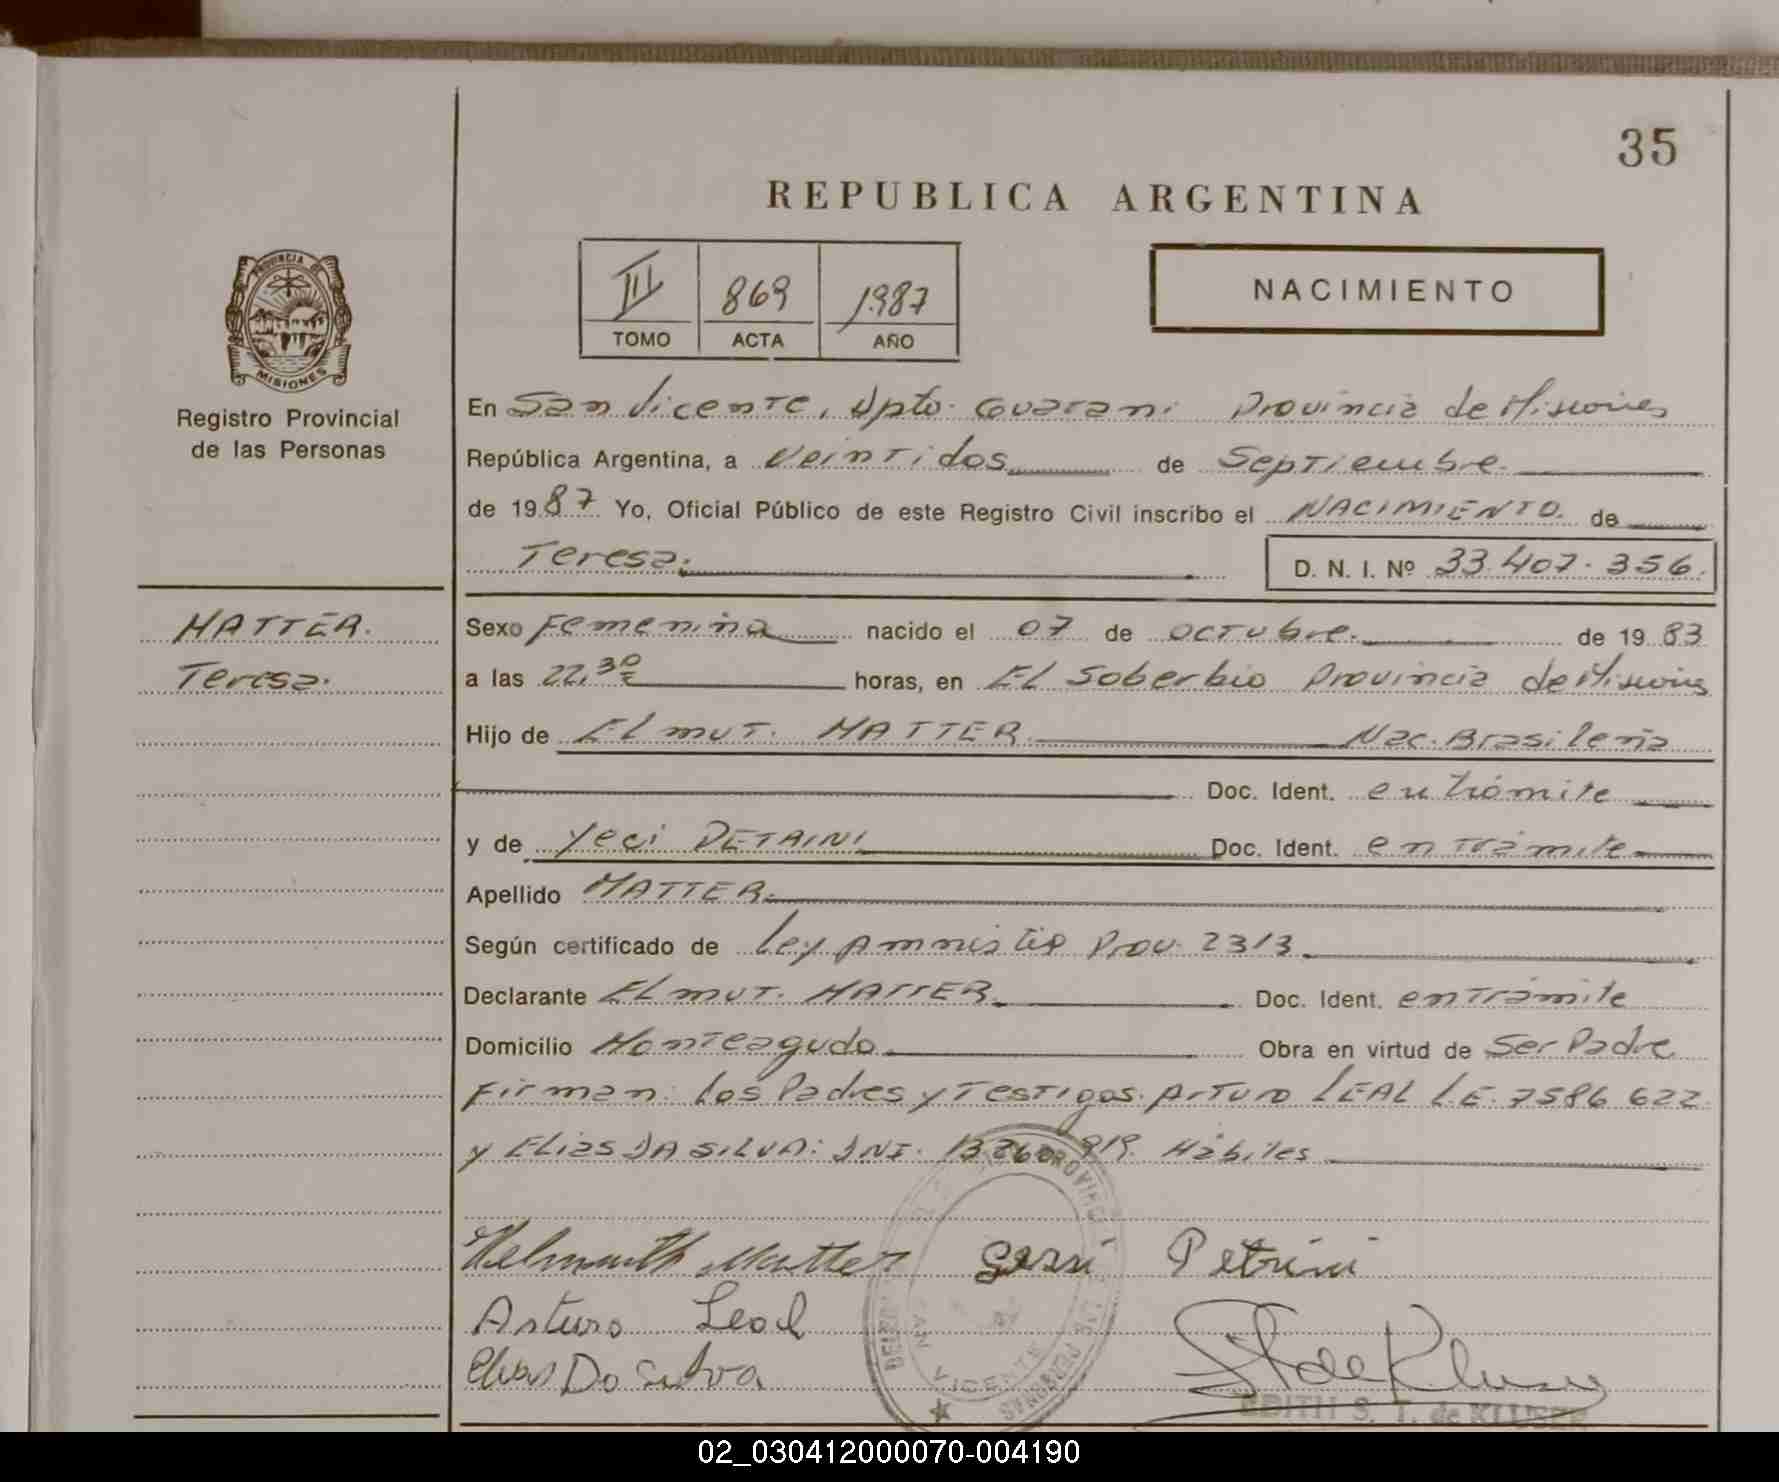 35
REPUBLICA ARGENTINA
PROVINCIA DE
MISIONES
Registro Provincial
de las Personas
III 869 1987
TOMO ACTA AÑO
NACIMIENTO
En San Vicente, Dpto. Guarani Provincia de Misiones
República Argentina, a Veintidos de Septiembre.
de 1987 Yo, Oficial Público de este Registro Civil inscribo el NACIMIENTO. de
Teresa. D. N. I. Nº 33.407.356.
MATTER.
Teresa.
Sexo Femenina nacido el 07 de octubre. de 1983
a las 22.30 horas, en El Soberbio Provincia de Misiones
Hijo de Elmut. MATTER Nac. Brasileña
Doc. Ident. en trámite
y de Yeci DETRINI Doc. Ident. en trámite
Apellido MATTER.
Según certificado de Ley Amnistia Prov. 2313
Declarante Elmut. MATTER. Doc. Ident. en trámite
Domicilio Monteagudo Obra en virtud de Ser Padre
Firman: los Padres y Testigos. Arturo LEAL L.E. 7586 622
y Elias DA SILVA: DNI. 13260 919. Hábiles
Helmuth Matter Petrini
Arturo Leal
Elias Da Silva
VICENTE
EDITH S. T. de KLUSER
02_030412000070-004190